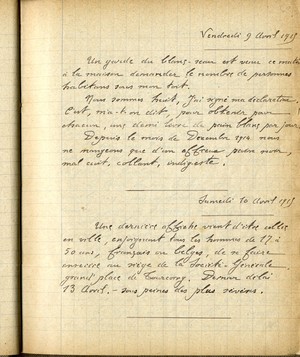 Vendredi 9 Avril 1915
Un garde du blanc-seau est venu ce matin
à la maison demander le nombre de personnes
habitant sous mon toit.
Nous sommes huit, j'ai signé ma déclaration
C'est, m'a-t-on dit, pour obtenir pour
chacun, une demi livre de pain blanc par jour
Depuis le mois de Décembre 1914 nous
ne mangeons que d'un affreux pain noir,
mal cuit, collant, indigeste.
Samedi 10 Avril 1915
Une dernière affiche vient d'être collée
en ville, enjoignant tous les hommes de 17 à
50 ans, français ou belges, de se faire
au siège de la Société Générale
grand' place de Tourcoing. Dernier délai
13 Avril. - sous peines des plus sévères.